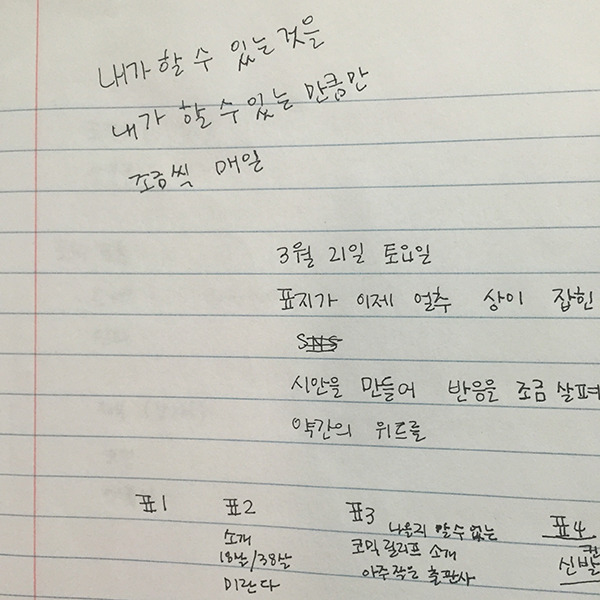 내가 할 수 있는 것을
내가 할 수 있는 만큼만
조금씩 매일
3월 21일 토요일
표지가 이제 얼추 상이 잡힌
SNS
시안을 만들어 반응을 조금 살펴
약간의 위드를
표1
표2
소개
18살/38살
미란다
표3
나올지 알 수 없는
코믹 릴리프 소개
아주 작은 출판사
표4
신발